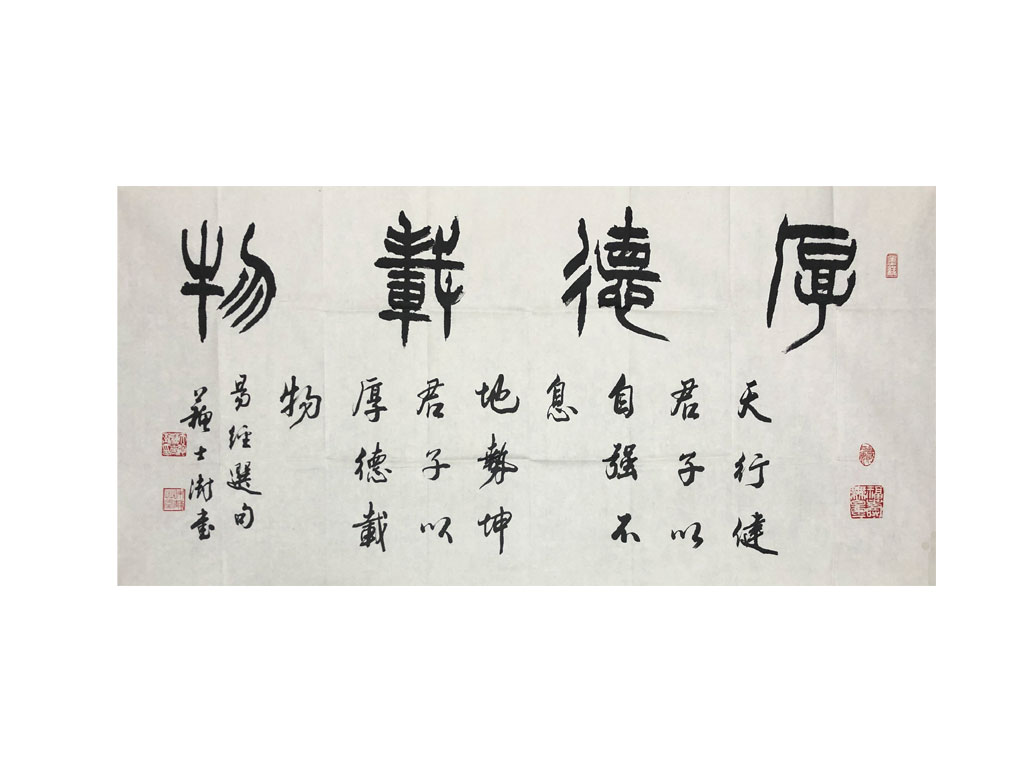 厚德載物
天行健
君子以
自强不
息
地勢坤
君子以
厚德載
物
易經選句
蘇士澍書